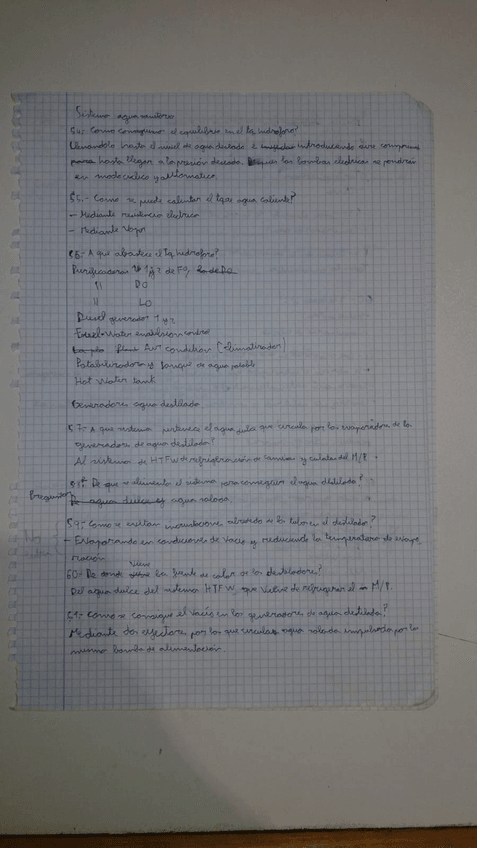 Sistema agua sanitaria
54.- Como conseguimos el equilibrio en el tq hidroforo?
Llenandolo hasta el nivel de agua deseado e introduciendo aire comprimido
para hasta llegar a la presión deseada. las bombas electricas se pondran
en modo ciclico y automatico.
55.- Como se puede calentar el tq de agua caliente?
- Mediante resistencia electrica
- Mediante vapor
56.- A que abastece el tq hidroforo?
Purificadoras 1 y 2 de FO,
" DO
" LO
Diesel generador 1 y 2
Fuel-Water emulsion control
Air condition (climatizador)
Potabilizadora y tanque de agua potable
Hot water tank
Generadores agua destilada
57.- A que sistema pertenece el agua dulce que circula por los evaporadores de los
generadores de agua destilada?
Al sistema de HTFW de refrigeración de camisas y culatas del M/P.
58.- De que se alimenta el sistema para conseguir el agua destilada?
Preguntar De agua dulce y agua salada.
59.- Como se evitan incrustaciones alrededor de los tubos en el destilador?
- Evaporando en condiciones de vacio y reduciendo la temperatura de evapo
ración
60.- De donde viene la fuente de calor de los destiladores?
Del agua dulce del sistema HTFW que vuelve de refrigerar el M/P.
61.- Como se consigue el vacío en los generadores de agua destilada?
Mediante dos eyectores por los que circula agua salada impulsada por la
misma bomba de alimentación.